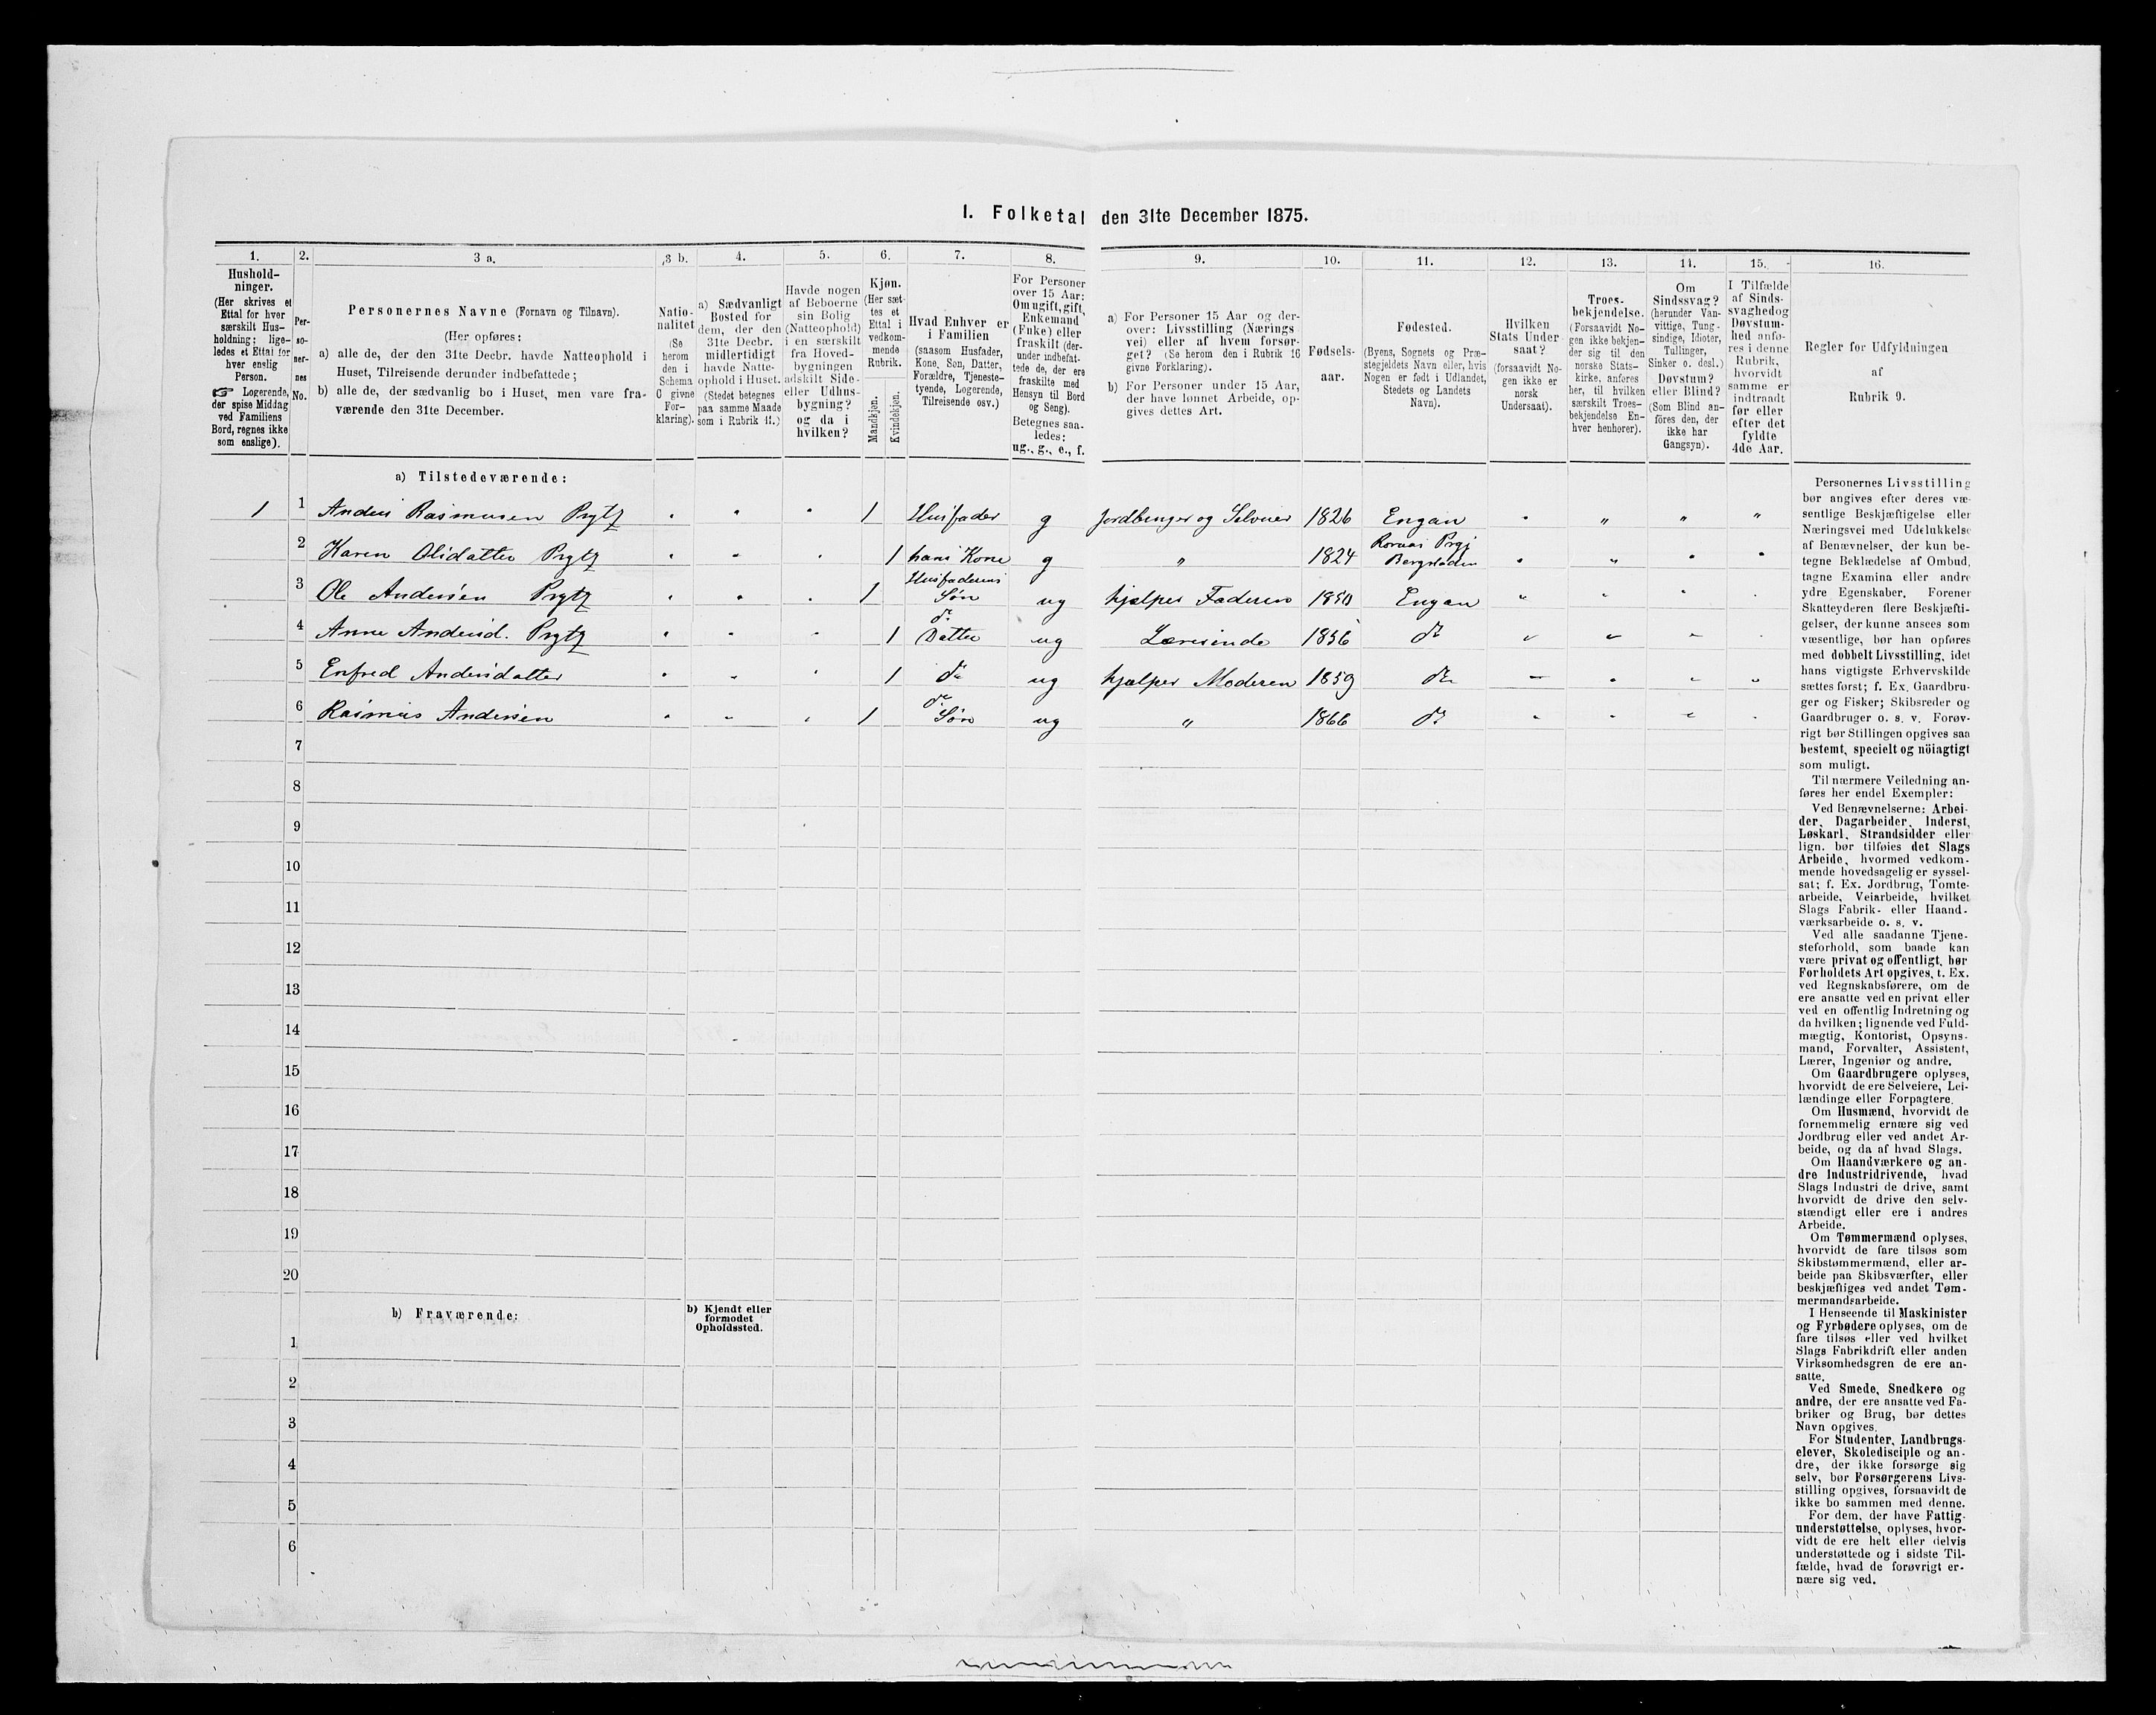 I. Folketal den 31te December 1875.
1. 2. 3 a. 3 b. 4. 5. 6. 7. 8. 9. 10. 11. 12. 13. 14. 15. 16.
Hushold-
ninger.
(Her skrives et
Ettal for hver
særskilt Hus-
holdning; lige-
ledes et Ettal for
hver enslig
Person.
☞ Logerende,
der spise Middag
ved Familiens
Bord, regnes ikke
som enslige).
Per-
so-
ner-
nes
No.
Personernes Navne (Fornavn og Tilnavn).
(Her opføres:
a) alle de, der den 31te Decbr. havde Natteophold i
Huset, Tilreisende derunder indbefattede;
b) alle de, der sædvanlig bo i Huset, men vare fra-
værende den 31te December.
Natio-
nalitet
(Se
herom
den i
Schema
6 givne
For-
klaring).
a) Sædvanligt
Bosted for
dem, der den
31te Decbr.
midlertidigt
havde Natte-
ophold i Huset.
(Stedet betegnes
paa samme Maade
som i Rubrik 11.)
Havde nogen
af Beboerne
sin Bolig
(Natteophold)
i en særskilt
fra Hoved-
bygningen
adskilt Side-
eller Udhus-
bygning?
og da i
hvilken?
Kjøn.
(Her sæt-
tes et
Ettal i
vedkom-
mende
Rubrik.
Mandkjøn.
Kvindekjøn.
Hvad Enhver er
i Familien
(saasom Husfader,
Kone, Søn, Datter,
Forældre, Tjeneste-
tyende, Logerende,
Tilreisende osv.)
For Personer
over 15 Aar:
Om ugift, gift,
Enkemand
(Enke) eller
fraskilt (der-
under indbefat-
tede de, der ere
fraskilte med
Hensyn til Bord
og Seng).
Betegnes saa-
ledes:
ug., g., e., f.
a) For Personer 15 Aar og der-
over: Livsstilling (Nærings
vei) eller af hvem forsør-
get? (Se herom den i Rubrik 16
givne Forklaring).
b) For Personer under 15 Aar,
der have lønnet Arbeide, op-
gives dettes Art.
Fødsels-
aar.
Fødested.
(Byens, Sognets og Præ-
stegjeldets Navn eller, hvis
Nogen er født i Udlandet,
Stedets og Landets
Navn).
Hvilken
Stats Under
saat?
(forsaavidt No-
gen ikke er
norsk
Undersaat).
Troes-
bekjendelse.
(Forsaavidt No-
gen ikke bekjen-
der sig til den
norske Stats-
kirke, anføres
her, til hvilken
særskilt Troes-
bekjendelse En-
hver henhører).
Om
Sindssvag?
(herunder Van-
vittige, Tung-
sindige, Idioter,
Tullinger,
Sinker o. desl.)
Døvstum?
eller Blind?
(Som Blind an-
føres den, der
ikke har
Gangsyn).
I Tilfælde
af Sinds-
svaghed og
Døvstum-
hed anfø-
res i denne
Rubrik,
hvorvidt
samme er
indtraadt
før eller
efter det
fyldte
4de Aar.
Regler for Udfyldningen
af
Rubrik 9.
a) Tilstedeværende:
1 1 Anders Rasmusen Prytz 1 Husfader g Jordbruger og Selveier 1826 Engan
2 Karen Olsdatter Prytz 1 hans Kone g " 1824 Roraas Prgj Bergstaden
3 Ole Andersen Prytz 1 Husfaderens Søn ug hjælper Faderen 1850 Engan
4 Anne Andersd. Prytz 1 do Datter ug Lærerinde 1856 do
5 Enfred Andersdatter 1 do ug hjælper Moderen 1859 do
6 Rasmus Andersen 1 do Søn ug " 1866 do
7
8
9
10
11
12
13
14
15
16
17
18
19
20
b) Fraværende:
b) Kjendt eller
formodet
Opholdssted.
1
2
3
4
5
6
Personernes Livsstilling
bør angives efter deres væ-
sentlige Beskjæftigelse eller
Næringsvei med Udelukkelse
af Benævnelser, der kun be-
tegne Beklædelse af Ombud,
tagne Examina eller andre
ydre Egenskaber. Forener
Skatteyderen flere Beskjæfti-
gelser, der kunne ansees som
væsentlige, bør han opføres
med dobbelt Livsstilling, idet
hans vigtigste Erhvervskilde
sættes først; f. Ex. Gaardbru-
ger og Fisker; Skibsreder og
Gaardbruger o. s. v. Forøv-
rigt bør Stillingen opgives saa
bestemt, specielt og nöiagtigt
som muligt.
Til nærmere Veiledning an-
føres her endel Exempler:
Ved Benævnelserne: Arbei-
der, Dagarbeider, Inderst,
Løskarl, Strandsidder eller
lign. bør tilføies det Slags
Arbeide, hvormed vedkom-
mende hovedsagelig er syssel-
sat; f. Ex. Jordbrug, Tomte-
arbeide, Veiarbeide, hvilket
Slags Fabrik- eller Haand-
værksarbeide o. s. v.
Ved alle saadanne Tjene-
steforhold, som baade kan
være privat og offentligt, bør
Forholdets Art opgives, t. Ex.
ved Regnskabsførere, om de
ere ansatte ved en privat eller
ved en offentlig Indretning og
da hvilken; lignende ved Fuld-
mægtig, Kontorist, Opsyns-
mand, Forvalter, Assistent,
Lærer, Ingeniør og andre.
Om Gaardbrugere oplyses,
hvorvidt de ere Selveiere, Lei-
lændinge eller Forpagtere.
Om Husmænd, hvorvidt de
fornemmelig ernære sig ved
Jordbrug eller ved andet Ar-
beide, og da af hvad Slags.
Om Haandværkere og an-
dre Industridrivende, hvad
Slags Industri de drive, samt
hvorvidt de drive den selv-
stændigt eller ere i andres
Arbeide.
Om Tømmermænd oplyses,
hvorvidt de fare tilsøs som
Skibstømmermænd, eller ar-
beide paa Skibsværfter, eller
beskjæftiges ved andet Tøm-
mermandsarbeide.
I Henseende til Maskinister
og Fyrbødere oplyses, om de
fare tilsøs eller ved hvilket
Slags Fabrikdrift eller anden
Virksomhedsgren de ere an-
satte.
Ved Smede, Snedkere og
andre, der ere ansatte ved Fa-
briker og Brug, bør dettes
Navn opgives.
For Studenter, Landbrugs-
elever, Skoledisciple og an-
dre, der ikke forsørge sig
selv, bør Forsørgerens Livs-
stilling opgives, forsaavidt de
ikke bo sammen med denne.
For dem, der have Fattig-
understøttelse, oplyses, hvor-
vidt de ere helt eller delvis
understøttede og i sidste Til-
fælde, hvad de forøvrigt er-
nære sig ved.